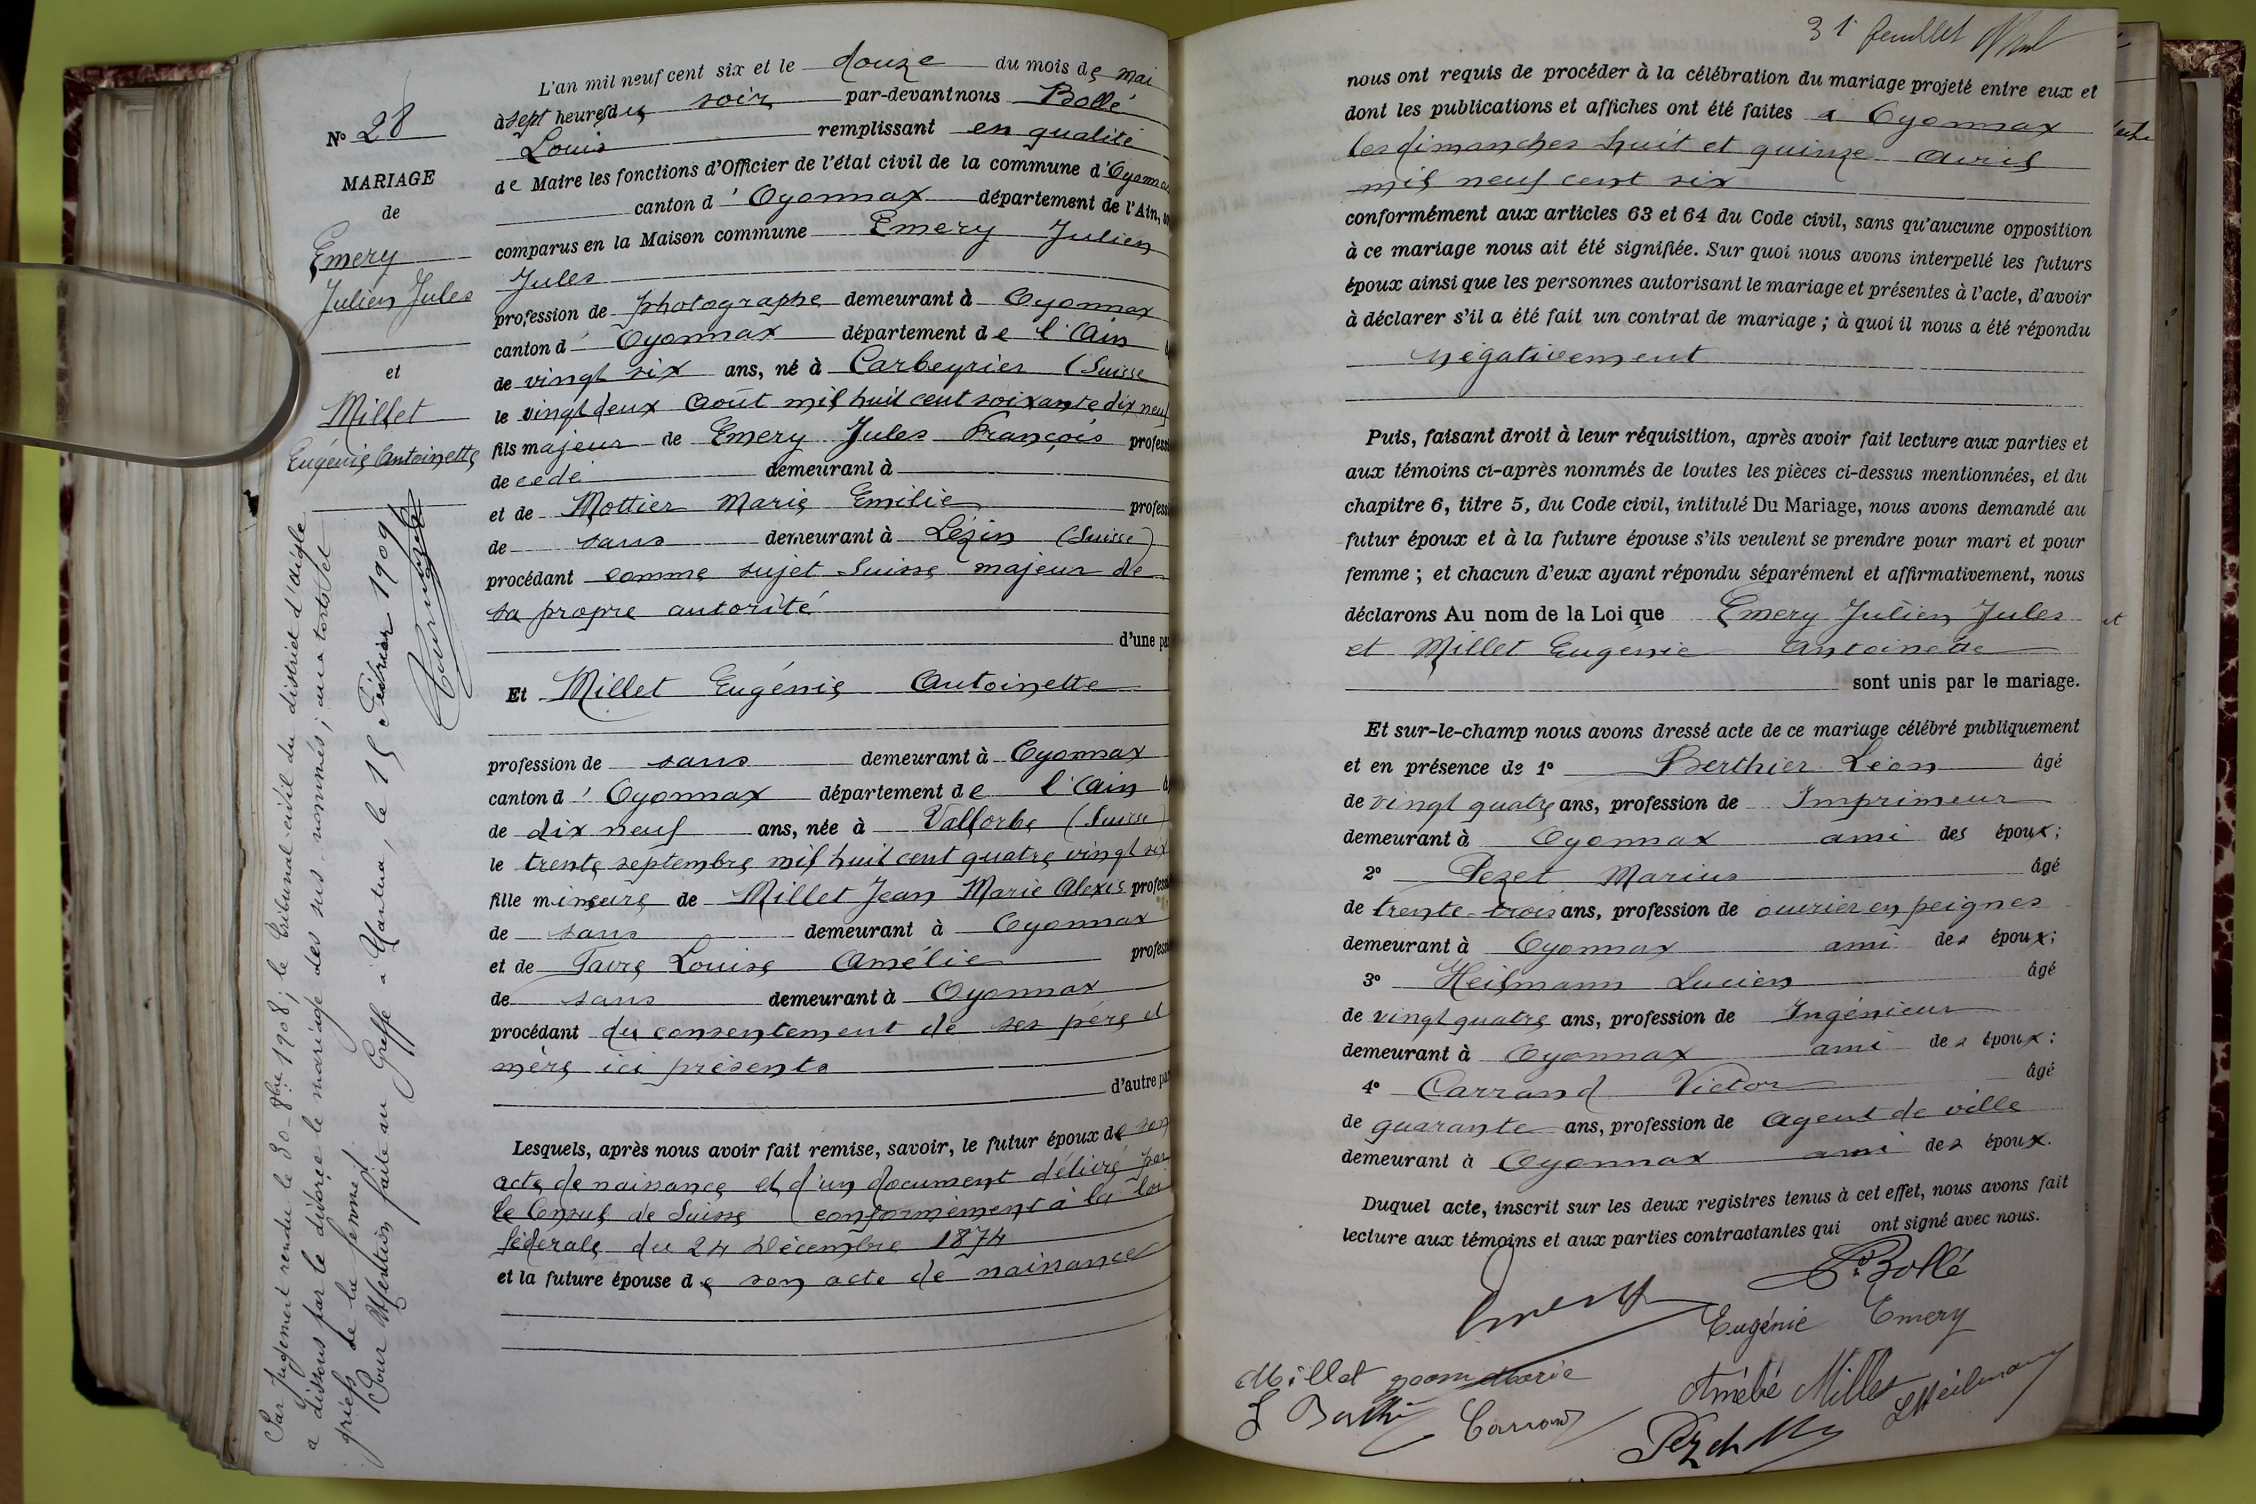 N° 28
MARIAGE
de
Emery
Julien Jules
et
Millet
Eugénie Antoinette
Par Jugement rendu le 30 - 8bre 1908, le Tribunal civil du district d'Aigle
a dissous par le divorce le mariage des sus nommés; aux torts et
griefs de la femme.
Pour Mention faite au Greffe à Nantua, le 15 Février 1909
L'an mil neuf cent six et le douze du mois de mai
à sept heures du soir par-devant nous Bollé
Louis remplissant en qualité
de Maire les fonctions d'Officier de l'état civil de la commune d'Oyonnax
canton d'Oyonnax département de l'Ain,
comparus en la Maison commune Emery Julien
Jules
profession de photographe demeurant à Oyonnax
canton d'Oyonnax département de l'Ain
de vingt six ans, né à Corbeyrier (Suisse
le vingt deux Août mil huit cent soixante dix neuf
fils majeur de Emery Jules François profess
de cédé demeurant à
et de Mottier Marie Emilie profess
de sans demeurant à Lézin (Suisse)
procédant comme sujet Suisse majeur de
sa propre autorité
d'une pa
Et Millet Eugénie Antoinette
profession de sans demeurant à Oyonnax
canton d'Oyonnax département de l'Ain
de dix neuf ans, née à Vallorbe (Suisse)
le trente septembre mil huit cent quatre vingt six
fille mineure de Millet Jean Marie Alexis profess
de sans demeurant à Oyonnax
et de Favre Louise Amélie profess
de sans demeurant à Oyonnax
procédant du consentement de ses père et
mère ici présents
d'autre pa
Lesquels, après nous avoir fait remise, savoir, le futur époux de son
acte de naissance et d'un document délivré par
le Consul de Suisse conformément à la loi
fédérale du 24 Décembre 1874
et la future épouse de son acte de naissance
31e feuillet
nous ont requis de procéder à la célébration du mariage projeté entre eux et
dont les publications et affiches ont été faites à Oyonnax
les dimanches huit et quinze avril
mil neuf cent six
conformément aux articles 63 et 64 du Code civil, sans qu'aucune opposition
à ce mariage nous ait été signifiée. Sur quoi nous avons interpellé les futurs
époux ainsi que les personnes autorisant le mariage et présentes à l'acte, d'avoir
à déclarer s'il a été fait un contrat de mariage ; à quoi il nous a été répondu
négativement
Puis, faisant droit à leur réquisition, après avoir fait lecture aux parties et
aux témoins ci-après nommés de toutes les pièces ci-dessus mentionnées, et du
chapitre 6, titre 5, du Code civil, intitulé Du Mariage, nous avons demandé au
futur époux et à la future épouse s'ils veulent se prendre pour mari et pour
femme ; et chacun d'eux ayant répondu séparément et affirmativement, nous
déclarons Au nom de la Loi que Emery Julien Jules
et Millet Eugénie Antoinette
sont unis par le mariage.
Et sur-le-champ nous avons dressé acte de ce mariage célébré publiquement
et en présence de 1° Berthier Léon âgé
de vingt quatre ans, profession de Imprimeur
demeurant à Oyonnax ami des époux;
2° Pezet Marius âgé
de trente-trois ans, profession de ouvrier en peignes
demeurant à Oyonnax ami des époux;
3° Heilmann Lucien âgé
de vingt quatre ans, profession de Ingénieur
demeurant à Oyonnax ami des époux;
4° Carrand Victor âgé
de quarante ans, profession de Agent de ville
demeurant à Oyonnax ami des époux.
Duquel acte, inscrit sur les deux registres tenus à cet effet, nous avons fait
lecture aux témoins et aux parties contractantes qui ont signé avec nous.
L. Bollé
Emery
Eugénie Emery
Millet Jean Marie
Amélie Millet
L Heilmann
L Berthier
Carrand
Pezet